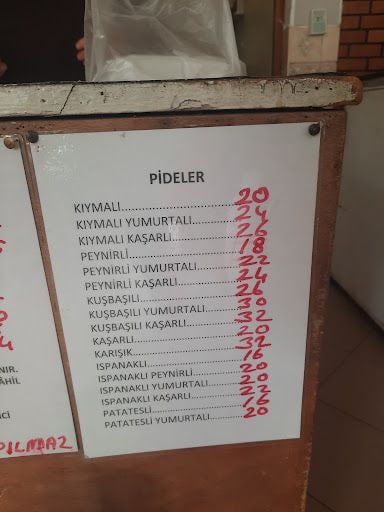 PİDELER
KIYMALI.......................... 20
KIYMALI YUMURTALI............ 24
KIYMALI KAŞARLI............... 26
PEYNİRLİ.......................... 18
PEYNİRLİ YUMURTALI............ 22
PEYNİRLİ KAŞARLI............... 24
KUŞBAŞILI........................ 26
KUŞBAŞILI YUMURTALI......... 30
KUŞBAŞILI KAŞARLI............ 32
KAŞARLI.......................... 20
KARIŞIK.......................... 32
ISPANAKLI........................ 16
ISPANAKLI PEYNİRLİ............ 20
ISPANAKLI YUMURTALI......... 20
ISPANAKLI KAŞARLI............ 22
PATATESLİ........................ 16
PATATESLİ YUMURTALI......... 20